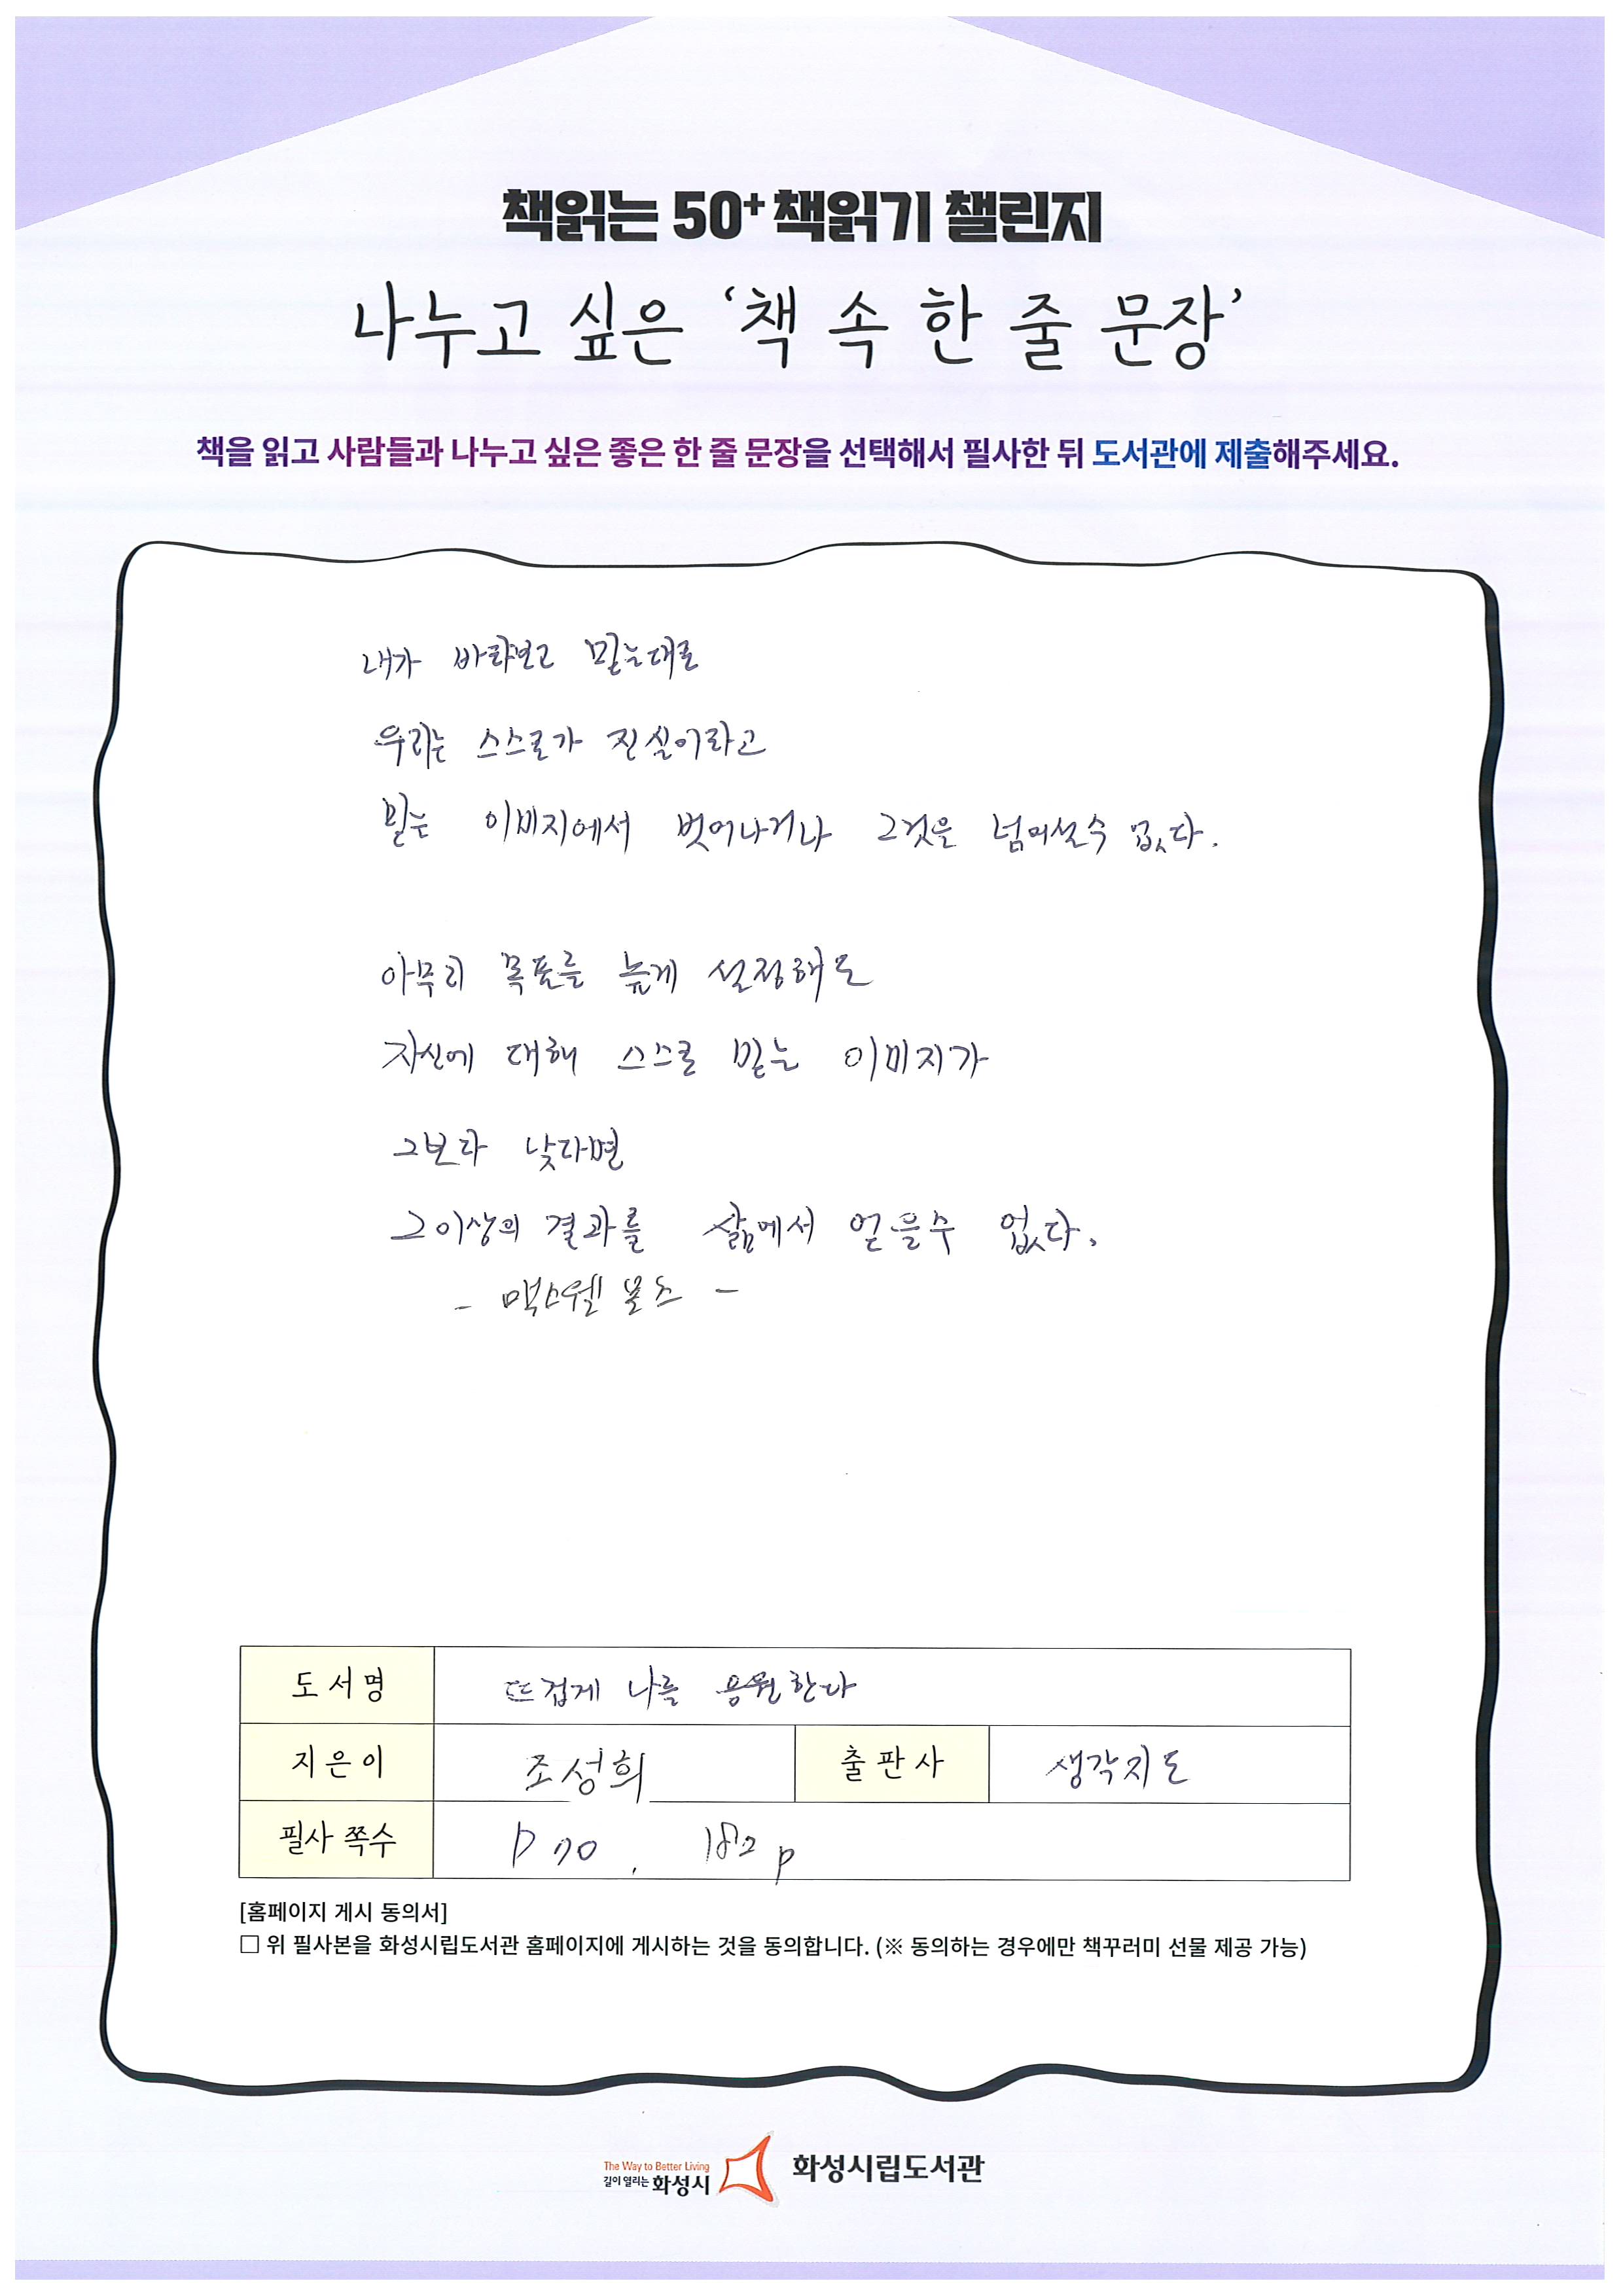 책읽는 50+ 책읽기 챌린지
나누고 싶은 ‘책 속 한 줄 문장’
책을 읽고 사람들과 나누고 싶은 좋은 한 줄 문장을 선택해서 필사한 뒤 도서관에 제출해주세요.
내가 바라보고 믿는대로
우리는 스스로가 진실이라고
믿는 이미지에서 벗어나거나 그것을 넘어설수 없다.
아무리 목표를 높게 설정해도
자신에 대해 스스로 믿는 이미지가
그보다 낮다면
그이상의 결과를 삶에서 얻을수 없다.
- 맥스웰 몰츠 -
도서명 뜨겁게 나를 응원한다
지은이 조성희 출판사 생각지도
필사 쪽수 p 70 , 182 p
[홈페이지 게시 동의서]
□ 위 필사본을 화성시립도서관 홈페이지에 게시하는 것을 동의합니다. (※ 동의하는 경우에만 책꾸러미 선물 제공 가능)
The Way to Better Living
길이 열리는 화성시
화성시립도서관